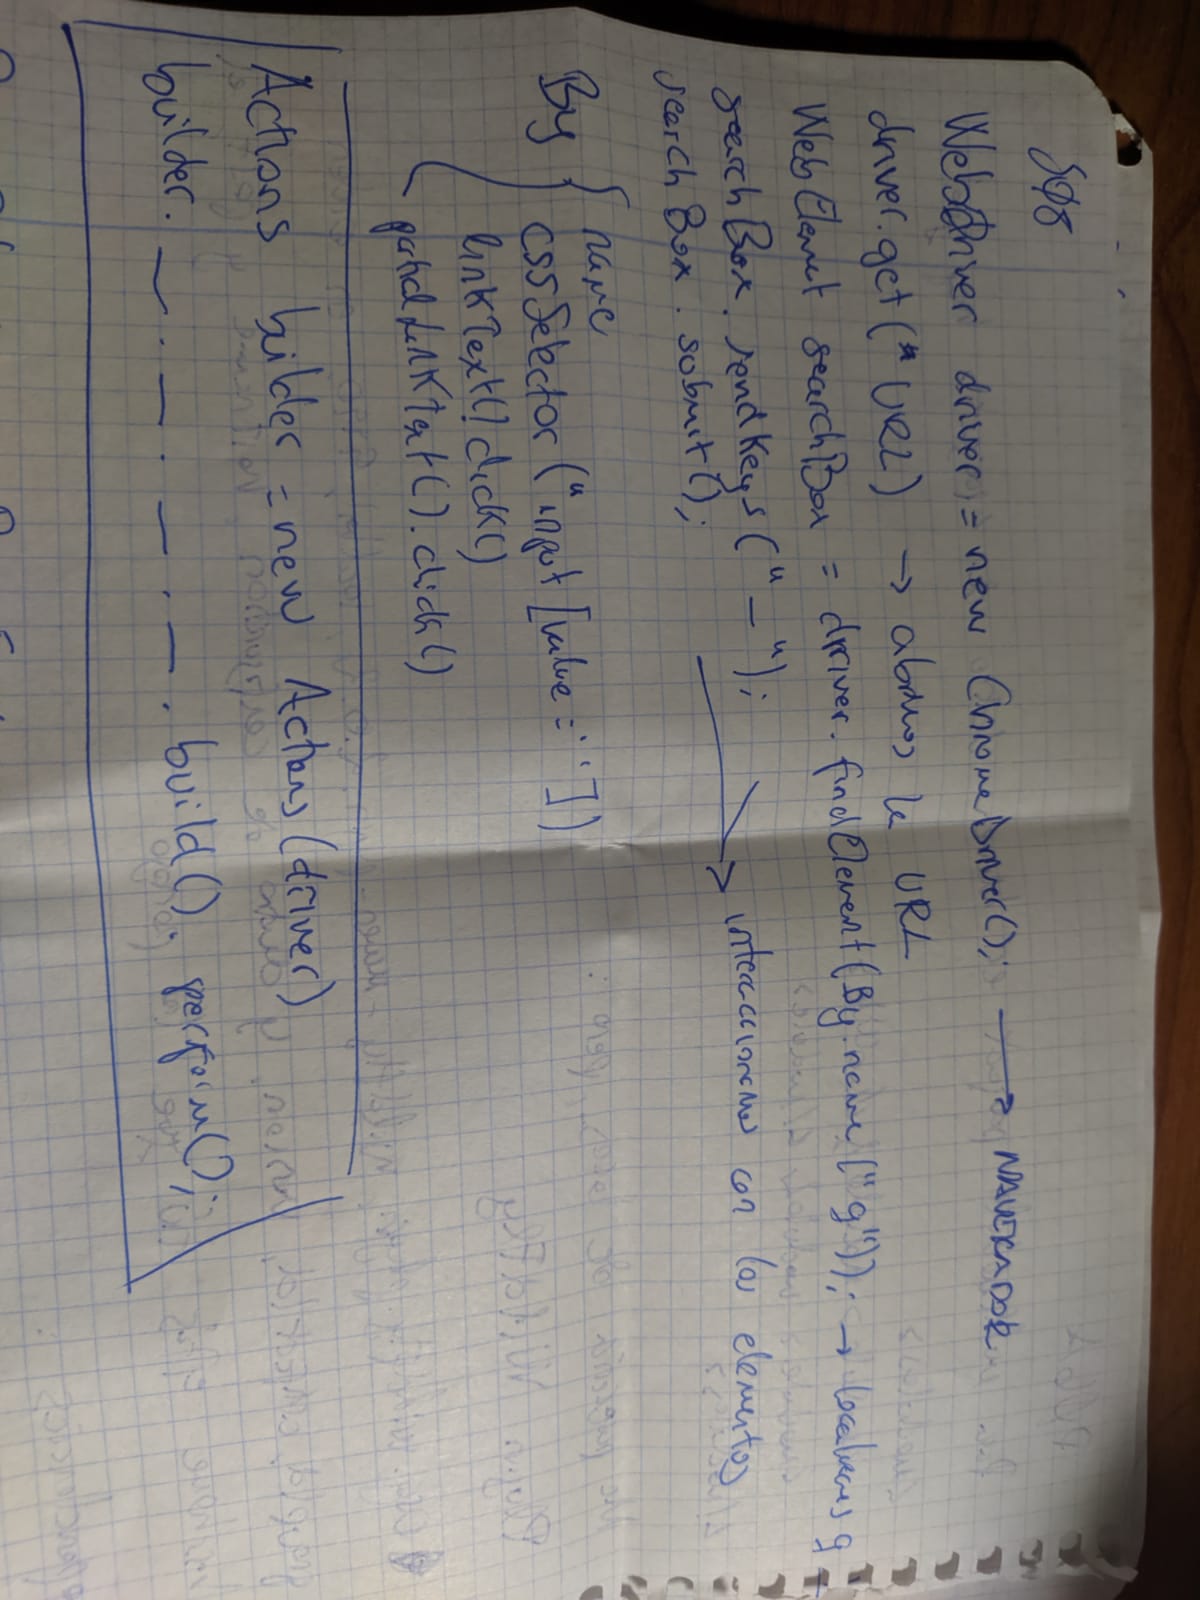 S08
WebDriver driver = new ChromeDriver(); → NAVEGADOR
driver.get(" URL) → abrimos la URL
WebElemet searchBox = driver.findElement(By.name("g")); → localizamos g
searchBox.sendKeys("—");
searchBox.submit(); → interaccionamos con los elementos
By { name
cssSelector("input [value=''])
linkText().click()
partialLinkText().click()
Actions builder = new Actions(driver)
builder. — . — . — . — . build(). perform();